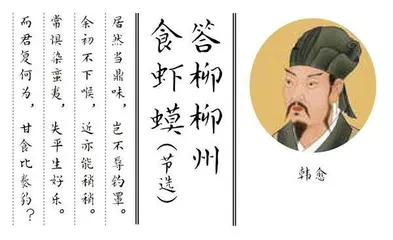 答柳柳州
食虾蟆(节选)
韩愈
居然当鼎味，岂不辱钓罩。
余初不下喉，近亦能稍稍。
常惧染蛮夷，失平生好乐。
而君复何为，甘食比豢豹？